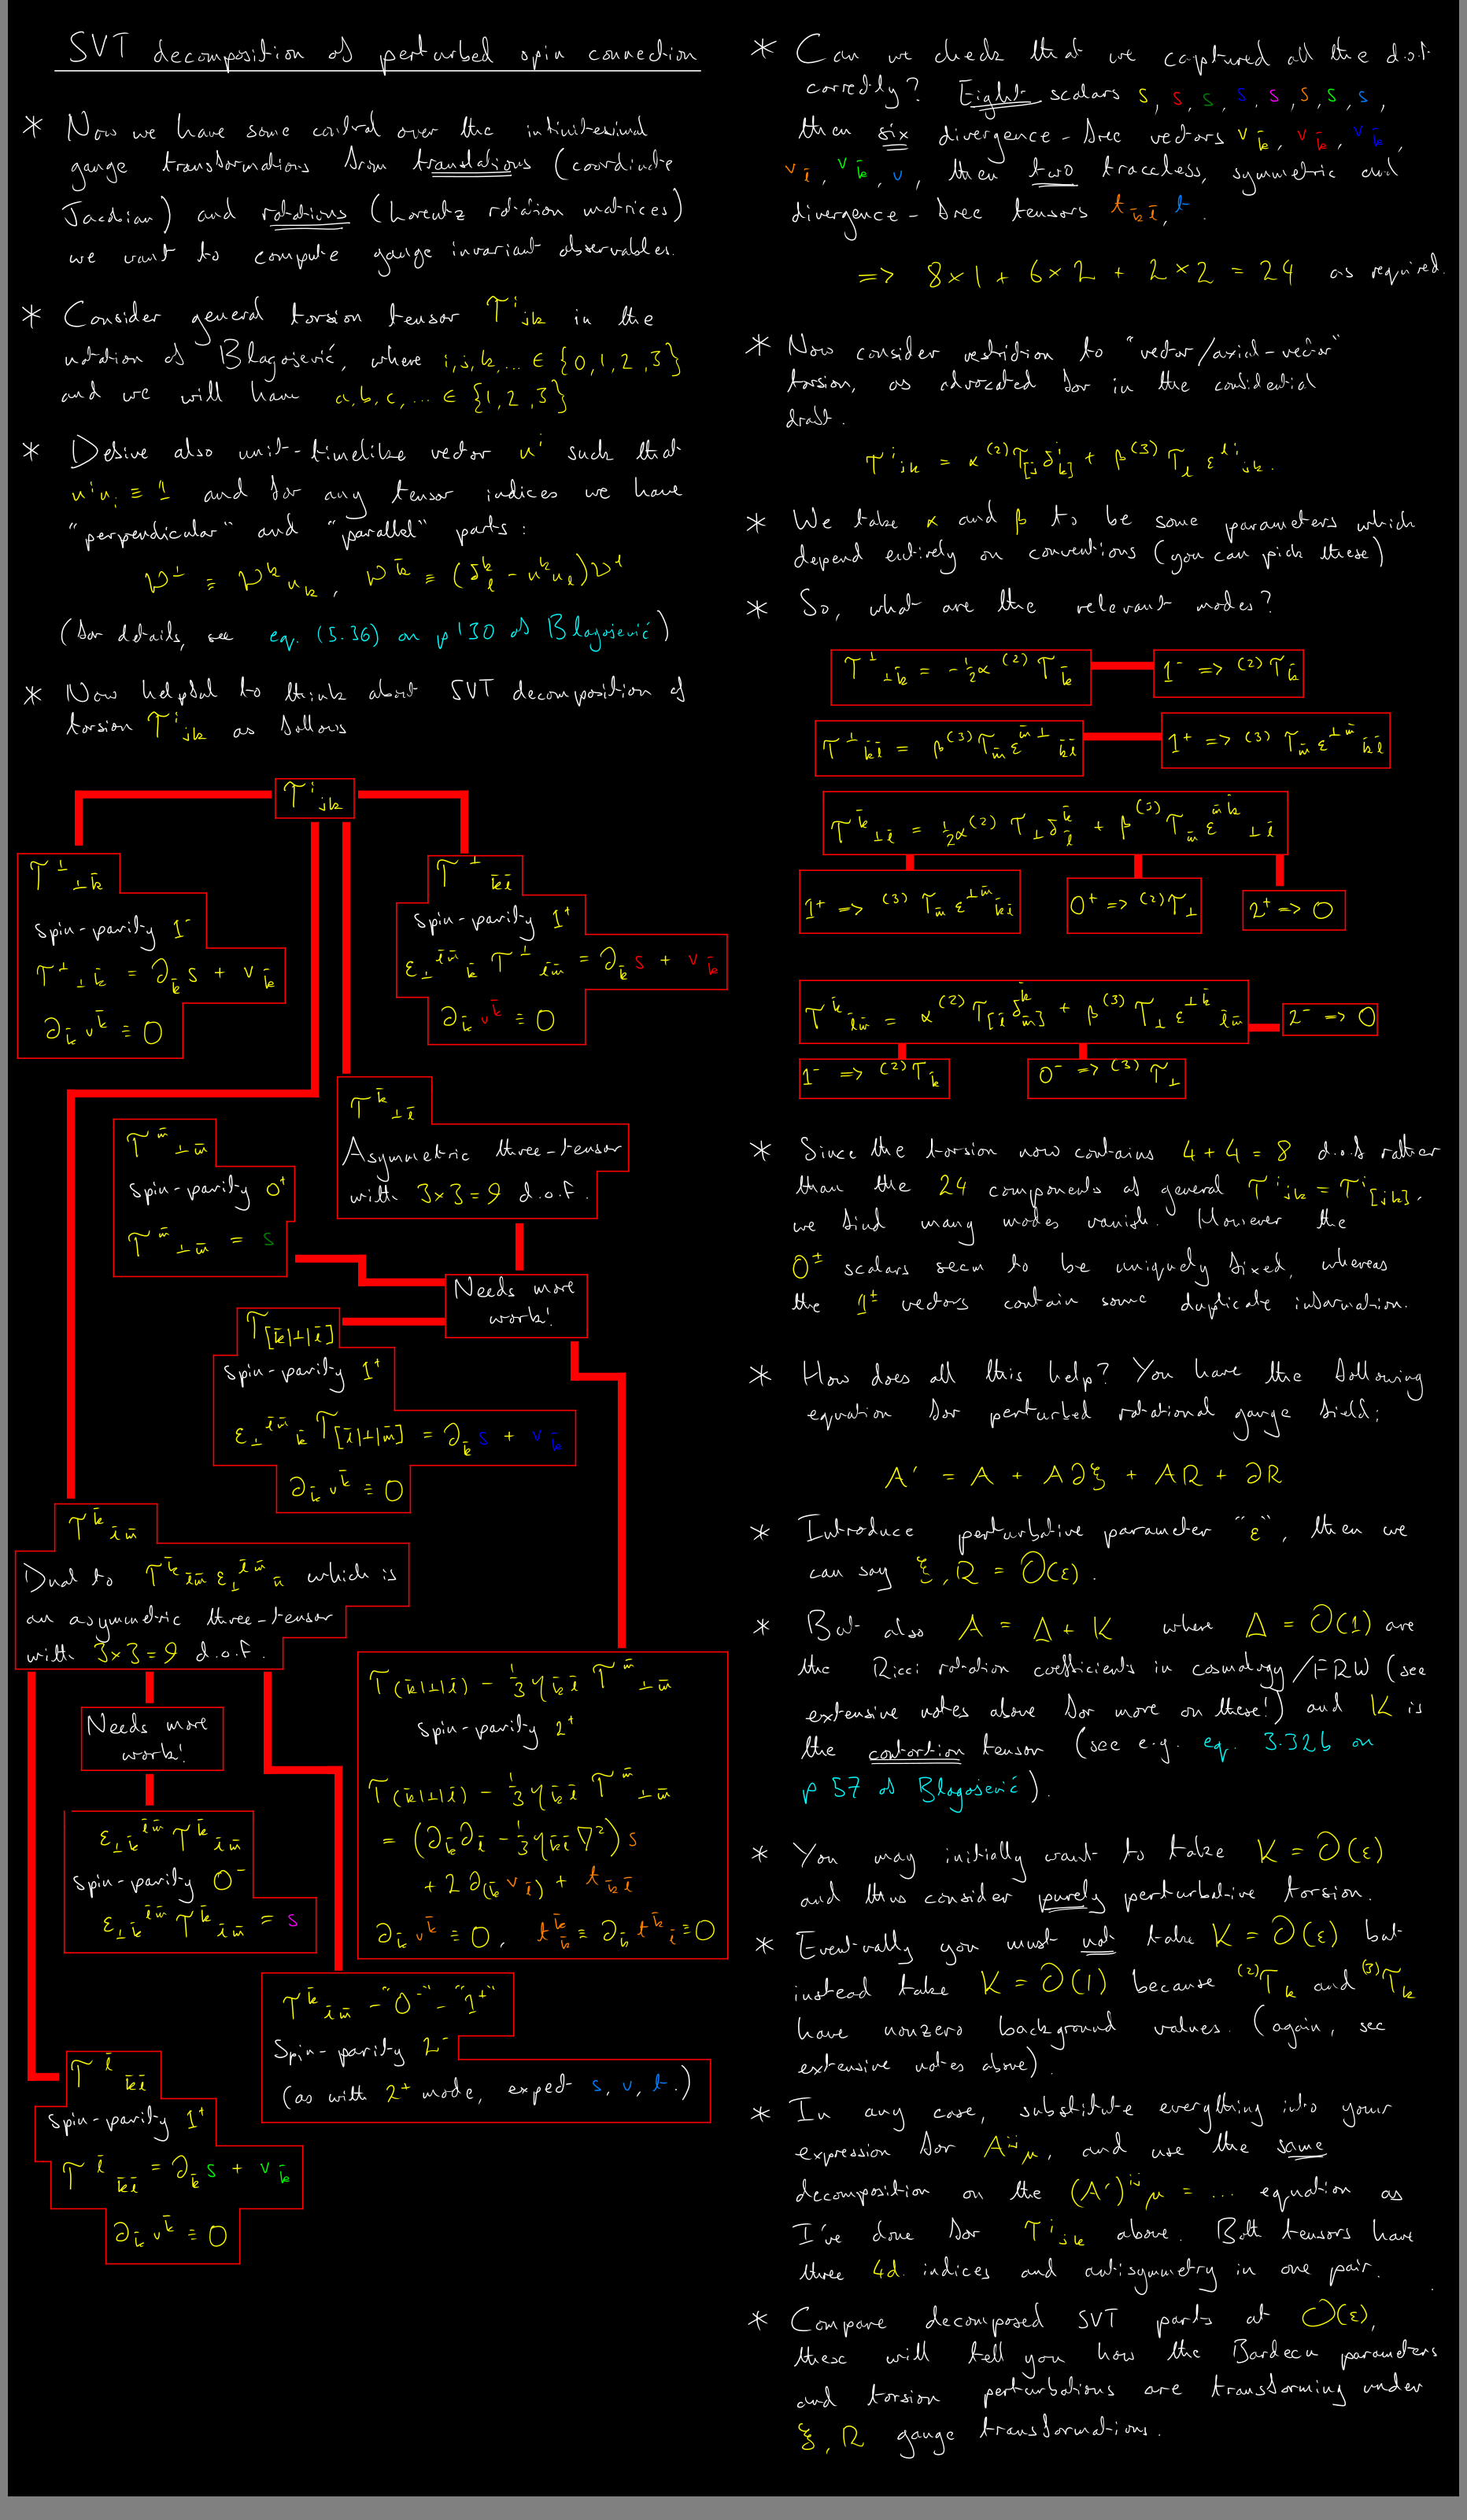 SVT decomposition of perturbed spin connection
* Now we have some control over the infinitesimal
gauge transformations from translations (coordinate
Jacobian) and rotations (Lorentz rotation matrices)
we want to compute gauge invariant observables.
* Consider general torsion tensor T^i_{jk} in the
notation of Blagojević, where i,j,k,... ∈ {0,1,2,3}
and we will have a,b,c,... ∈ {1,2,3}
* Define also unit-timelike vector n^i such that
n^i n_i ≡ 1 and for any tensor indices we have
"perpendicular" and "parallel" parts:
V^⊥ ≡ V^k n_k, V^{k̄} ≡ (δ^k_l - n^k n_l) V^l
(for details, see eq. (5.36) on p 130 of Blagojević)
* Now helpful to think about SVT decomposition of
torsion T^i_{jk} as follows
T^i_{jk}
T^⊥_{⊥k̄}
Spin-parity 1^-
T^⊥_{⊥k̄} = ∂_{k̄} s + v_{k̄}
∂_{k̄} v^{k̄} ≡ 0
T^⊥_{k̄l̄}
Spin-parity 1^+
ε_⊥^{l̄m̄}_{k̄} T^⊥_{l̄m̄} = ∂_{k̄} s + v_{k̄}
∂_{k̄} v^{k̄} ≡ 0
T^{k̄}_{⊥l̄}
Asymmetric three-tensor
with 3×3=9 d.o.f.
T^{m̄}_{⊥m̄}
Spin-parity 0^+
T^{m̄}_{⊥m̄} = s
Needs more
work!
T_{[k̄|⊥|l̄]}
Spin-parity 1^+
ε_⊥^{l̄m̄}_{k̄} T_{[l̄|⊥|m̄]} = ∂_{k̄} s + v_{k̄}
∂_{k̄} v^{k̄} ≡ 0
T^{k̄}_{l̄m̄}
Dual to T^{k̄}_{l̄m̄} ε_⊥^{l̄m̄}_{n̄} which is
an asymmetric three-tensor
with 3×3=9 d.o.f.
Needs more
work!
ε_{⊥k̄}^{l̄m̄} T^{k̄}_{l̄m̄}
Spin-parity 0^-
ε_{⊥k̄}^{l̄m̄} T^{k̄}_{l̄m̄} = s
T_{(k̄|⊥|l̄)} - 1/3 η_{k̄l̄} T^{m̄}_{⊥m̄}
Spin-parity 2^+
T_{(k̄|⊥|l̄)} - 1/3 η_{k̄l̄} T^{m̄}_{⊥m̄}
= (∂_{k̄}∂_{l̄} - 1/3 η_{k̄l̄} ∇^2) s
+ 2 ∂_{(k̄} v_{l̄)} + t_{k̄l̄}
∂_{k̄} v^{k̄} ≡ 0, t^{k̄}_{k̄} ≡ ∂_{k̄} t^{k̄}_{l̄} ≡ 0
T^{k̄}_{l̄m̄} - "0^-" - "1^+"
Spin-parity 2^-
(as with 2^+ mode, expect s, v, t.)
T^{l̄}_{k̄l̄}
Spin-parity 1^+
T^{l̄}_{k̄l̄} = ∂_{k̄} s + v_{k̄}
∂_{k̄} v^{k̄} ≡ 0
* Can we check that we captured all the d.o.f
correctly? Eight scalars s, s, s, s, s, s, s, s,
then six divergence-free vectors v_{k̄}, v_{k̄}, v_{k̄},
v_{l̄}, v_{k̄}, v, then two traceless, symmetric and
divergence-free tensors t_{k̄l̄}, t.
=> 8×1 + 6×2 + 2×2 = 24 as required.
* Now consider restriction to "vector/axial-vector"
torsion, as advocated for in the confidential
draft.
T^i_{jk} = α ^{(2)}T_{[j} δ^i_{k]} + β ^{(3)}T_l ε^{li}_{jk}.
* We take α and β to be some parameters which
depend entirely on conventions (you can pick these)
* So, what are the relevant modes?
T^⊥_{⊥k̄} = -1/2 α ^{(2)}T_{k̄}
1^- => ^{(2)}T_{k̄}
T^⊥_{k̄l̄} = β ^{(3)}T_{m̄} ε^{m̄⊥}_{k̄l̄}
1^+ => ^{(3)}T_{m̄} ε^{⊥m̄}_{k̄l̄}
T^{k̄}_{⊥l̄} = 1/2 α ^{(2)}T_⊥ δ^{k̄}_{l̄} + β ^{(3)}T_{m̄} ε^{m̄k̄}_{⊥l̄}
1^+ => ^{(3)}T_{m̄} ε^{⊥m̄}_{k̄l̄}
0^+ => ^{(2)}T_⊥
2^+ => 0
T^{k̄}_{l̄m̄} = α ^{(2)}T_{[l̄} δ^{k̄}_{m̄]} + β ^{(3)}T_⊥ ε^{⊥k̄}_{l̄m̄}
2^- => 0
1^- => ^{(2)}T_{k̄}
0^- => ^{(3)}T_⊥
* Since the torsion now contains 4+4=8 d.o.f rather
than the 24 components of general T^i_{jk} = T^i_{[jk]},
we find many modes vanish. However the
0^± scalars seem to be uniquely fixed, whereas
the 1^± vectors contain some duplicate information.
* How does all this help? You have the following
equation for perturbed rotational gauge field:
A' = A + A∂ξ + AR + ∂R
* Introduce perturbative parameter "ε", then we
can say ξ, R = O(ε).
* But also A = Δ + K where Δ = O(1) are
the Ricci rotation coefficients in cosmology/FRW (see
extensive notes above for more on these!) and K is
the contortion tensor (see e.g. eq. 3.32b on
p 57 of Blagojević).
* You may initially want to take K = O(ε)
and thus consider purely perturbative torsion.
* Eventually you must not take K = O(ε) but
instead take K = O(1) because ^{(2)}T_k and ^{(3)}T_k
have nonzero background values. (again, see
extensive notes above).
* In any case, substitute everything into your
expression for A^{ij}_μ, and use the same
decomposition on the (A')^{ij}_μ = ... equation as
I've done for T^i_{jk} above. Both tensors have
three 4d. indices and antisymmetry in one pair.
* Compare decomposed SVT parts at O(ε),
these will tell you how the Bardeen parameters
and torsion perturbations are transforming under
ξ, R gauge transformations.